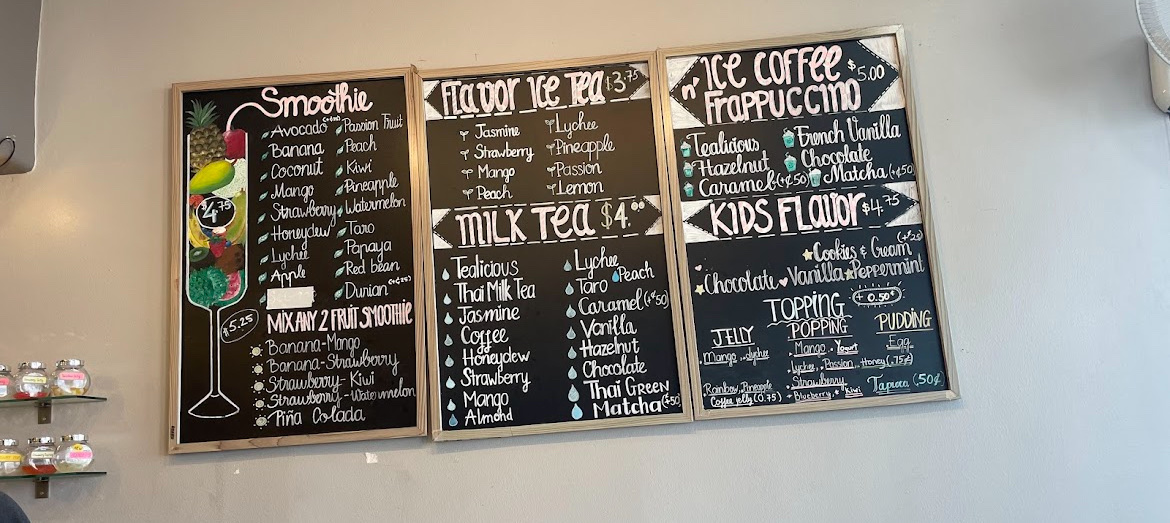 Smoothie
Avocado
Banana
Coconut
Mango
Strawberry
Honeydew
Lychee
Apple
Passion Fruit
Peach
Kiwi
Pineapple
Watermelon
Taro
Papaya
Red bean
Durian
$4.75
MIX ANY 2 FRUIT SMOOTHIE
$5.25
Banana-Mango
Banana-Strawberry
Strawberry-Kiwi
Strawberry-Watermelon
Piña Colada
Flavor Ice Tea $3.75
Jasmine
Strawberry
Mango
Peach
Lychee
Pineapple
Passion
Lemon
MILK TEA $4.00
Tealicious
Thai Milk Tea
Jasmine
Coffee
Honeydew
Strawberry
Mango
Almond
Lychee
Taro Peach
Caramel (+¢50)
Vanilla
Hazelnut
Chocolate
Thai GREEN
Matcha (+$50)
ICE COFFEE $5.00
n' FRAPPUCCINO
Tealicious
Hazelnut
Caramel (+¢50)
French Vanilla
Chocolate
Matcha (+¢50)
KIDS FLAVOR $4.75
Cookies & Cream (+¢25)
Chocolate Vanilla Peppermint
TOPPING + 0.50¢
JELLY
Mango, lychee
Rainbow, Pineapple
Coffee jelly (0.75)
POPPING
Mango, Yogurt
Lychee, Passion, Honey (.75¢)
Strawberry
Blueberry, Kiwi
PUDDING
Egg
Tapioca (.50¢